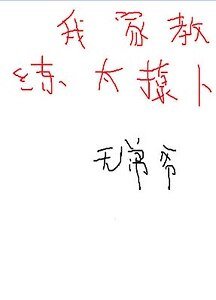 我家教
练太卜
无常爷